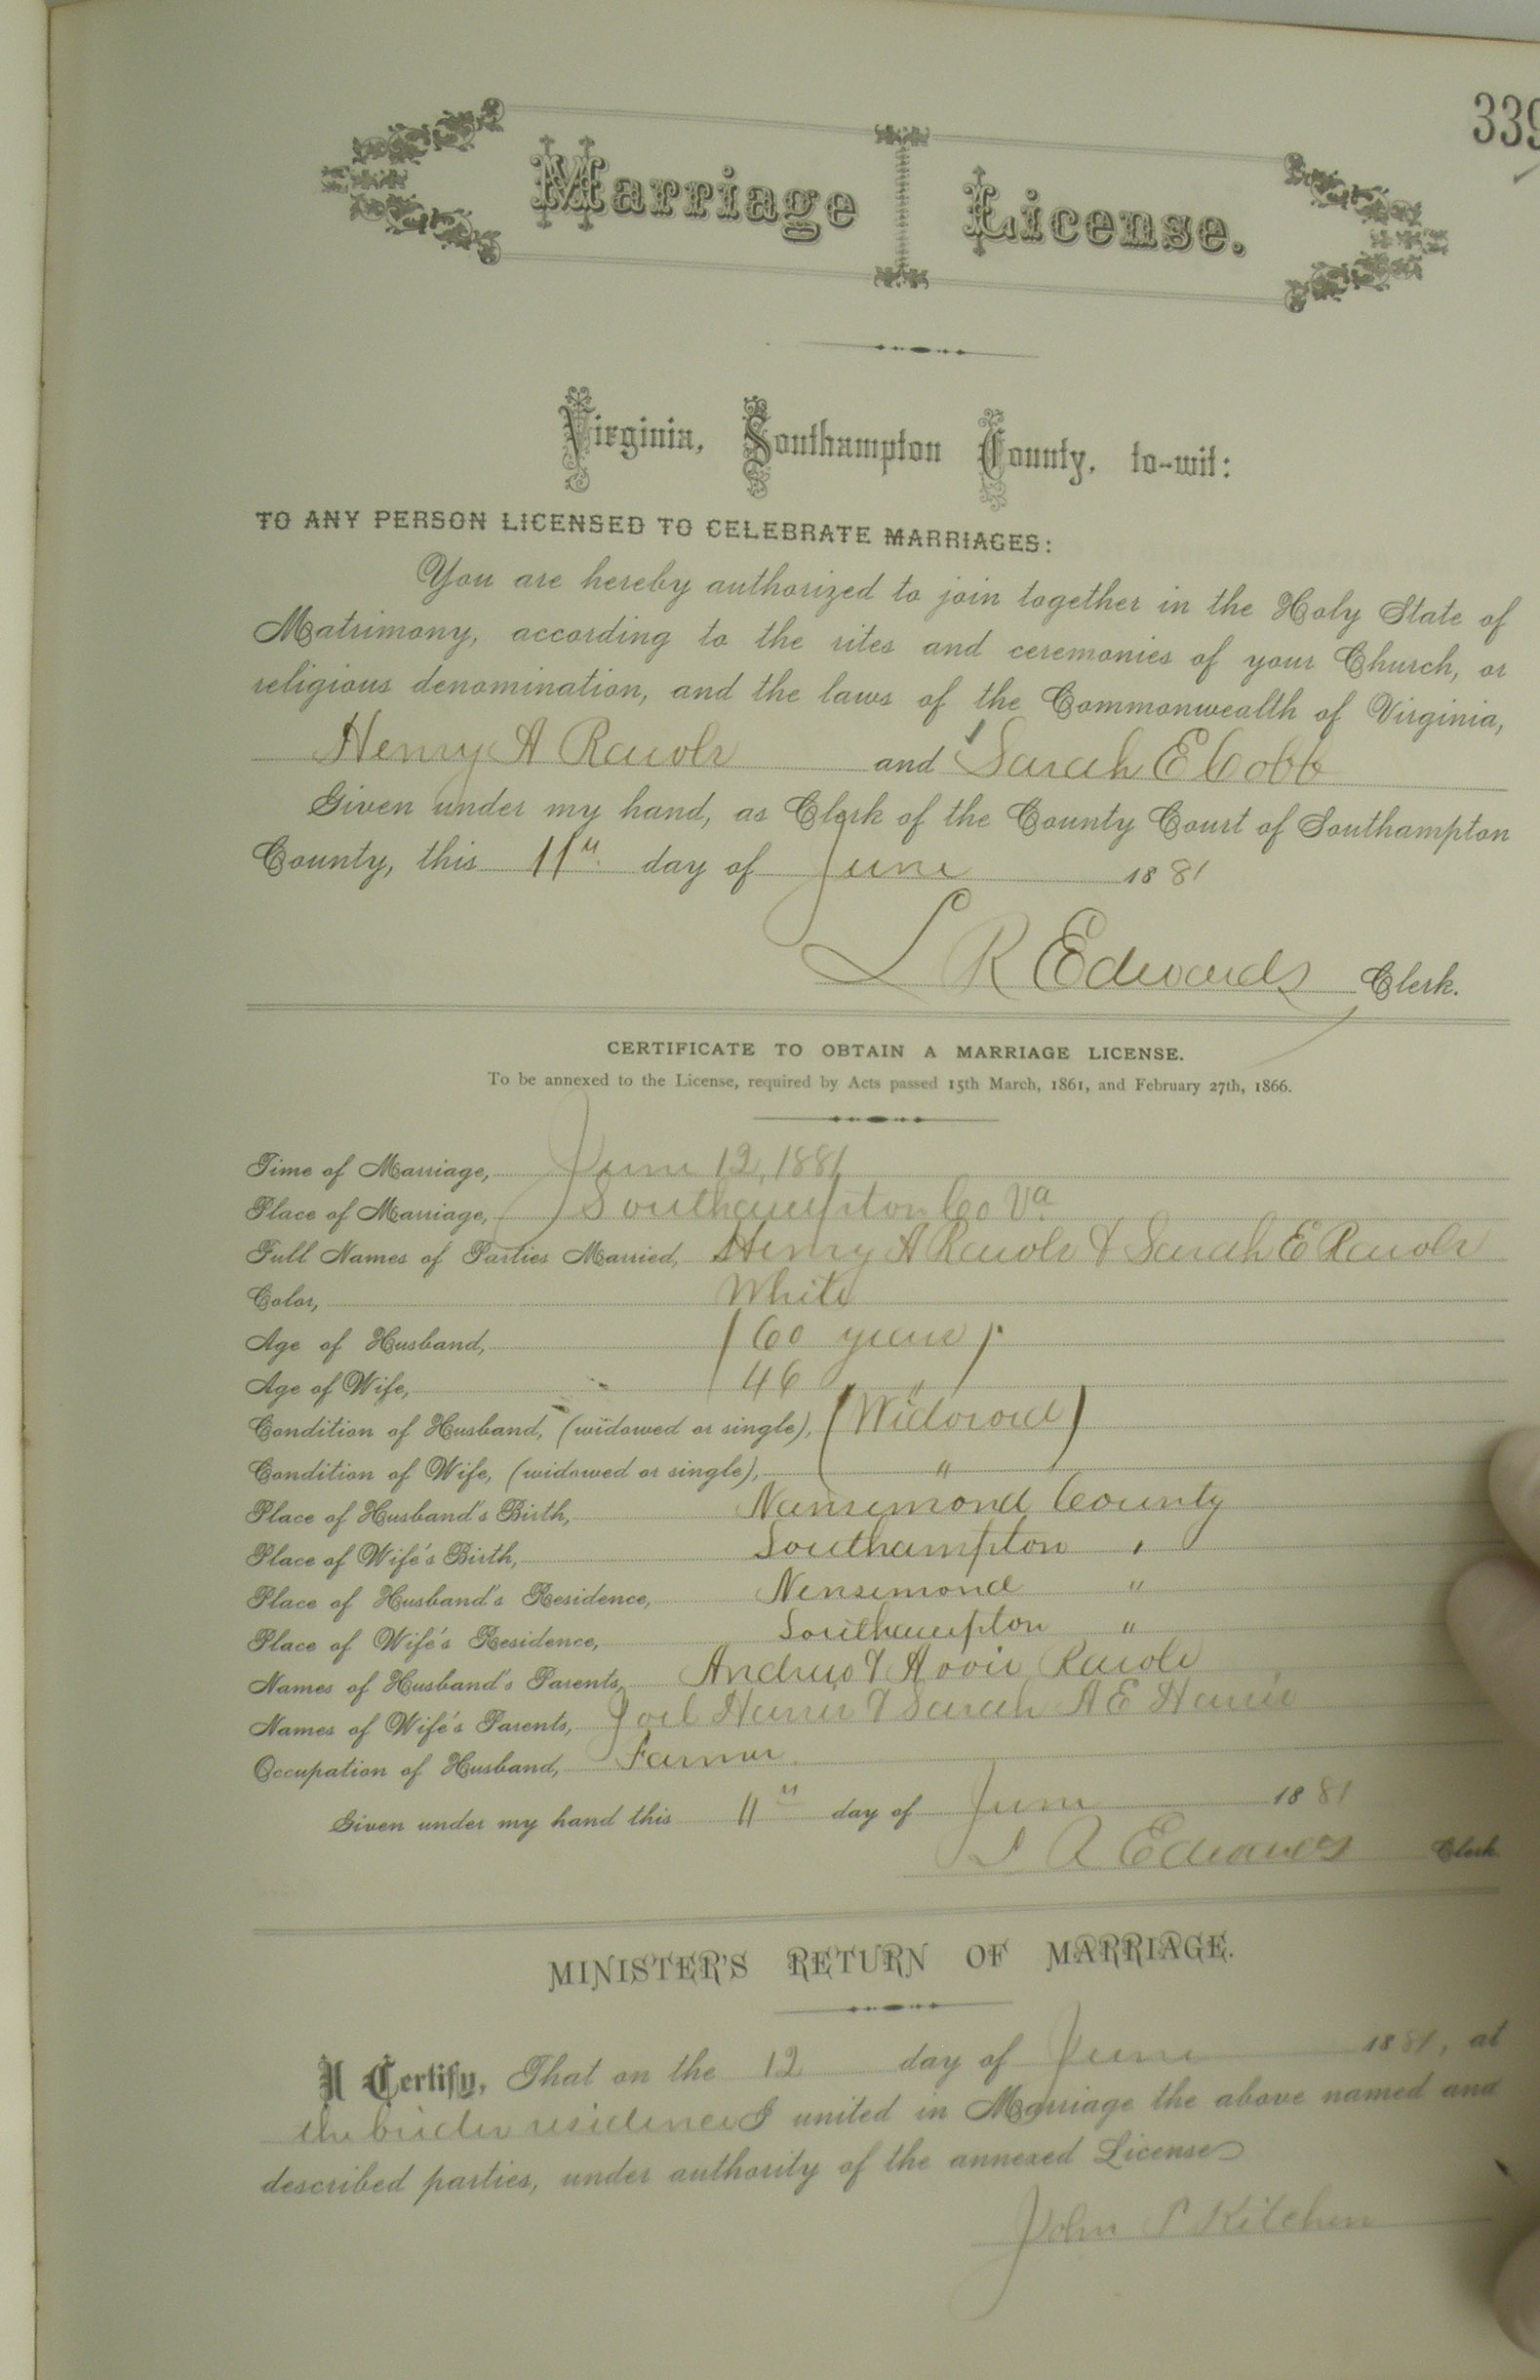 339
Marriage License.
Virginia, Southampton County, to-wit:
TO ANY PERSON LICENSED TO CELEBRATE MARRIAGES:
You are hereby authorized to join together in the Holy State of
Matrimony, according to the rites and ceremonies of your Church, or
religious denomination, and the laws of the Commonwealth of Virginia,
Henry A Rawls and Sarah E Cobb
Given under my hand, as Clerk of the County Court of Southampton
County, this 11th day of June 1881
L R Edwards Clerk.
CERTIFICATE TO OBTAIN A MARRIAGE LICENSE.
To be annexed to the License, required by Acts passed 15th March, 1861, and February 27th, 1866.
Time of Marriage, June 12, 1881
Place of Marriage, Southampton Co Va
Full Names of Parties Married, Henry A Rawls & Sarah E Rawls
Color, White
Age of Husband, 60 years
Age of Wife, 46 "
Condition of Husband, (widowed or single), Widowed
Condition of Wife, (widowed or single), "
Place of Husband's Birth, Nansemond County
Place of Wife's Birth, Southampton "
Place of Husband's Residence, Nansemond "
Place of Wife's Residence, Southampton "
Names of Husband's Parents, Andrew & Rawls
Names of Wife's Parents, Joel & Sarah A E
Occupation of Husband, Farmer.
Given under my hand this 11th day of June 1881
L R Edwards Clerk
MINISTER'S RETURN OF MARRIAGE.
I Certify, That on the 12 day of June 1881, at
the brides residence I united in Marriage the above named and
described parties, under authority of the annexed License
John P Kitchen